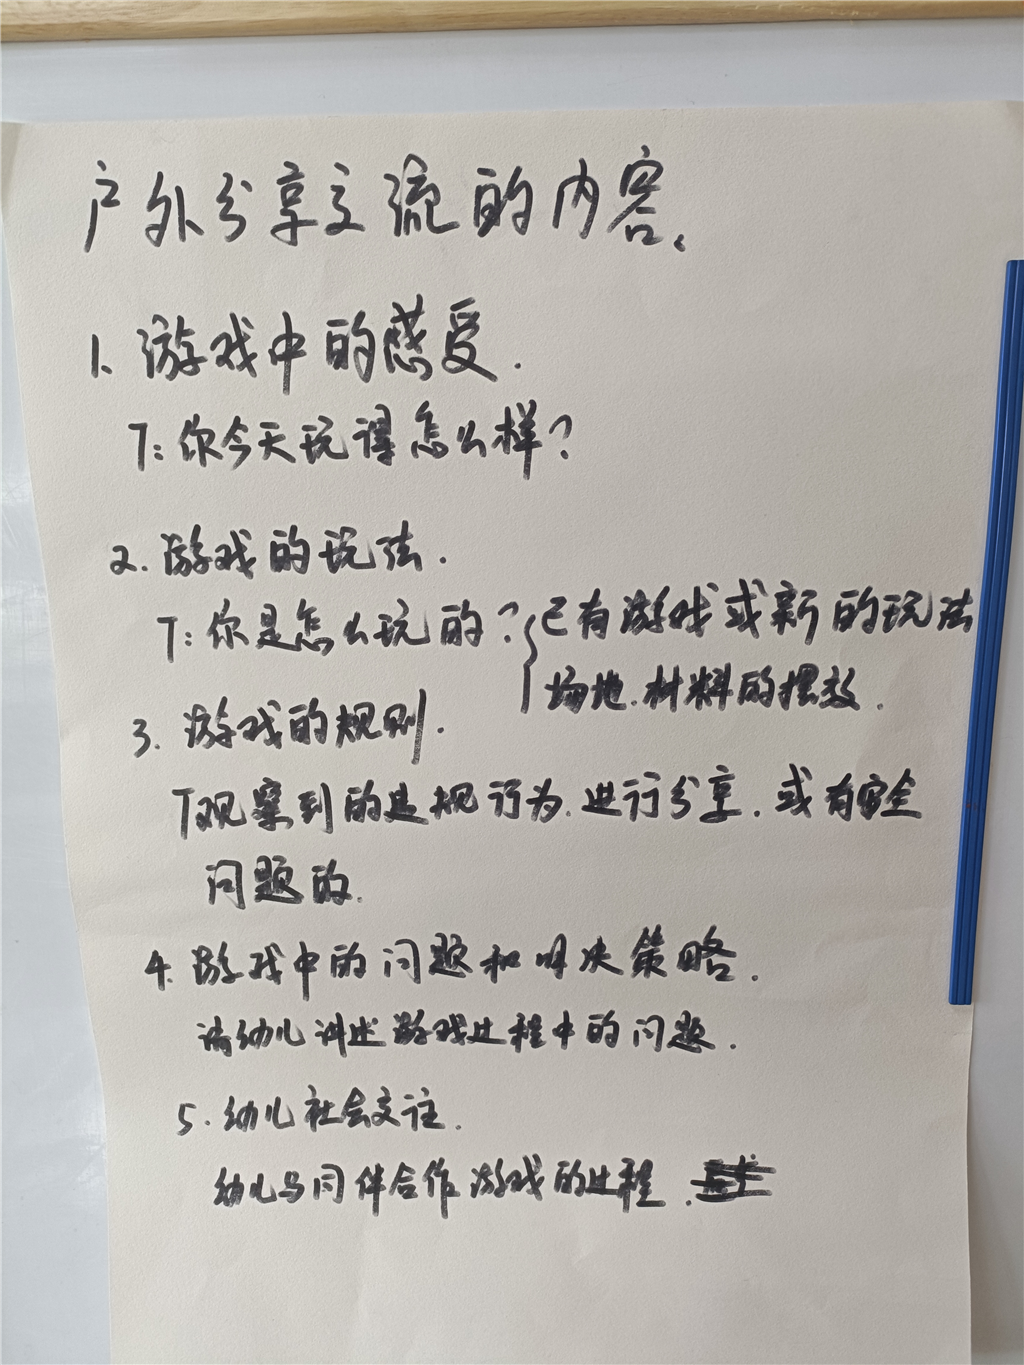 户外分享交流的内容、
1. 游戏中的感受.
T: 你今天玩得怎么样?
2. 游戏的玩法.
T: 你是怎么玩的? { 已有游戏或新的玩法
场地.材料的摆放.
3. 游戏的规则.
T观察到的违规行为.进行分享.或有安全
问题的.
4. 游戏中的问题和解决策略.
请幼儿讲述游戏过程中的问题.
5. 幼儿社会交往.
幼儿与同伴合作游戏的过程.